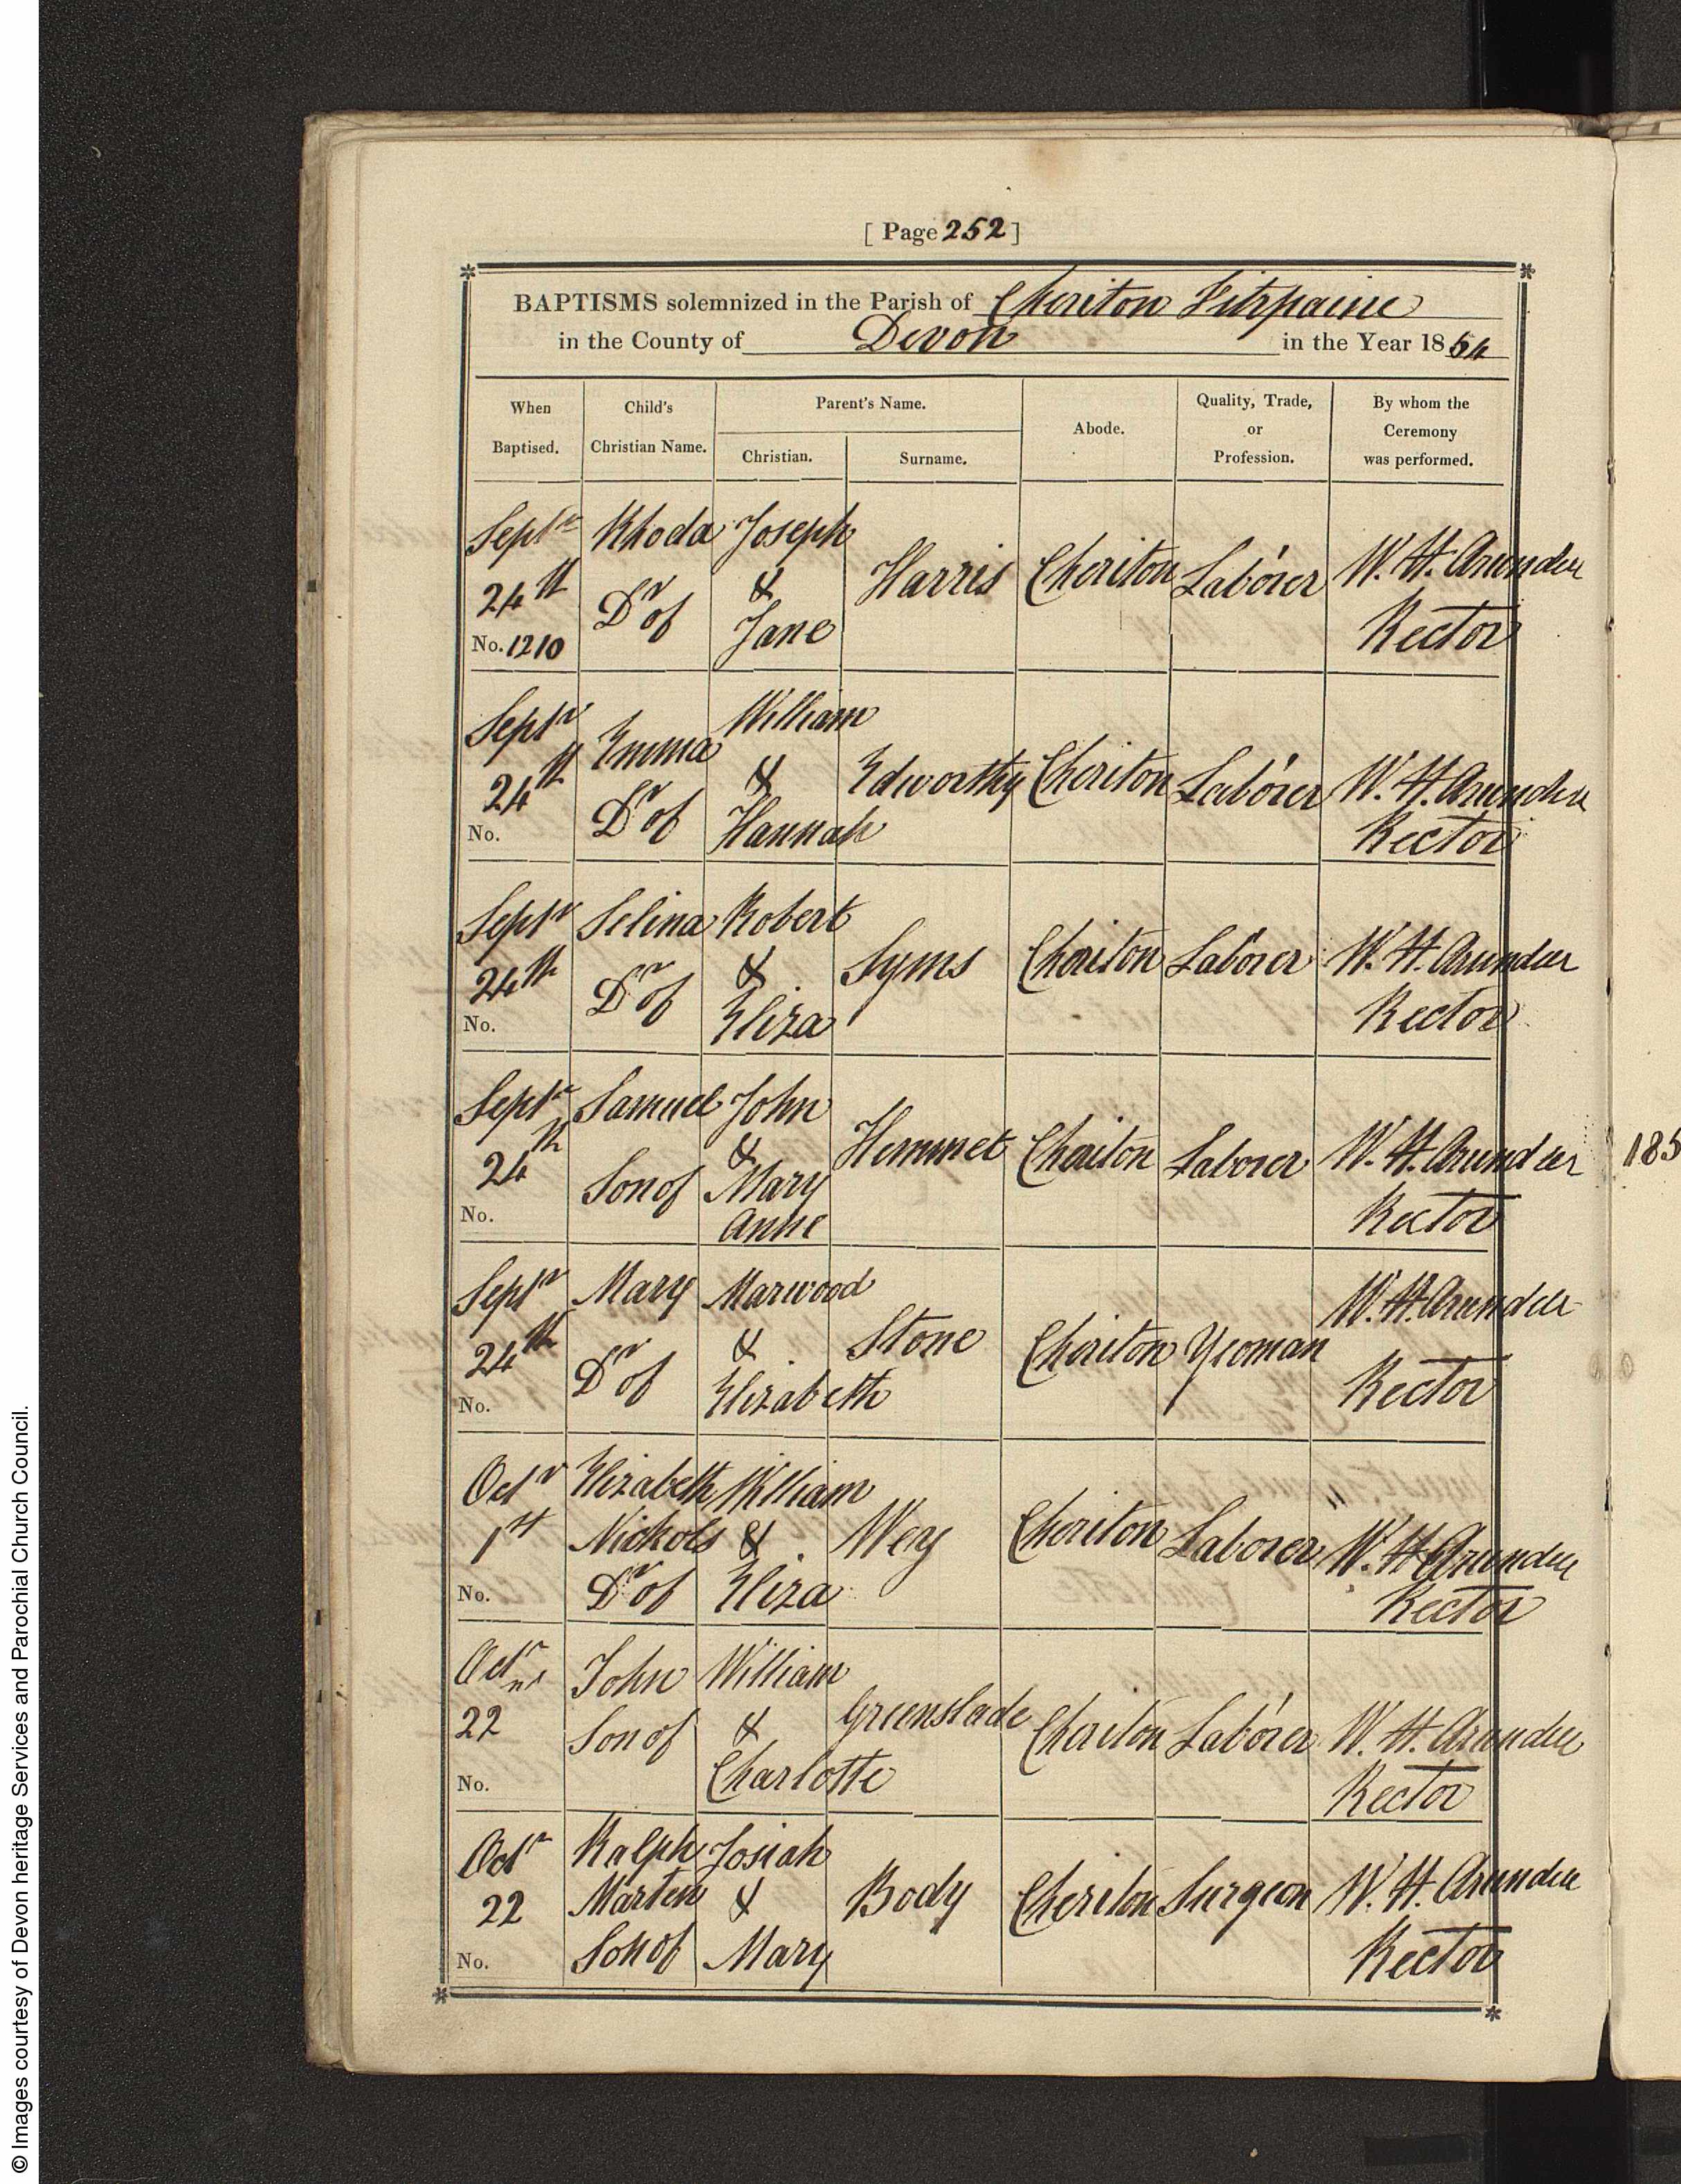 [ Page 252 ]
BAPTISMS solemnized in the Parish of Cheriton Fitzpaine
in the County of Devon in the Year 1854
When Baptised.
Child's Christian Name.
Parent's Name.
Christian.
Surname.
Abode.
Quality, Trade, or Profession.
By whom the Ceremony was performed.
Septr 24th
No. 1210
Rhoda Dr of
Joseph & Jane
Harris
Cheriton
Laborer
W. H. Arundell Rector
Septr 24th
No.
Emma Dr of
William & Hannah
Edworthy
Cheriton
Laborer
W. H. Arundell Rector
Septr 24th
No.
Selina Dr of
Robert & Eliza
Syms
Cheriton
Laborer
W. H. Arundell Rector
Septr 24th
No.
Samuel Son of
John & Mary Anne
Hemmet
Cheriton
Laborer
W. H. Arundell Rector
Septr 24th
No.
Mary Dr of
Marwood & Elizabeth
Stone
Cheriton
Yeoman
W. H. Arundell Rector
Octr 1st
No.
Elizabeth Nickols Dr of
William & Eliza
Wey
Cheriton
Laborer
W. H. Arundell Rector
Octr 22
No.
John Son of
William & Charlotte
Greenslade
Cheriton
Laborer
W. H. Arundell Rector
Octr 22
No.
Ralph Marten Son of
Josiah & Mary
Body
Cheriton
Surgeon
W. H. Arundell Rector
185
© Images courtesy of Devon heritage Services and Parochial Church Council.